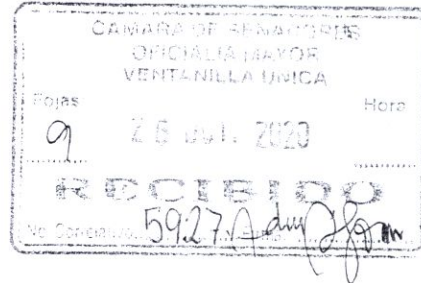 CAMARA DE SENADORES
OFICIALIA MAYOR
VENTANILLA UNICA
Fojas Hora
9 2020
RECIBIDO
No 5927